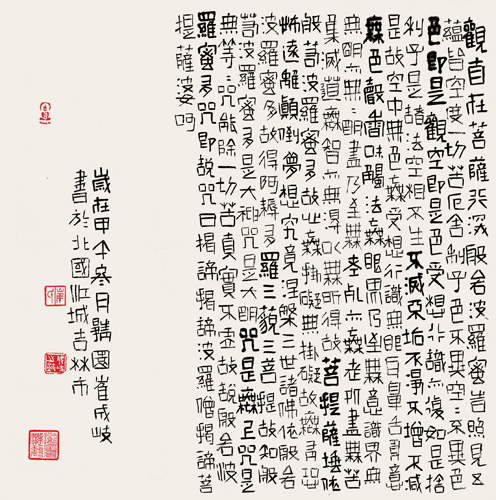 觀自在菩薩行深般羅蜜皆照見五
蘊皆空度一切苦厄舍利子色不異空空不異色
色即是觀空即是色受想行識亦復如是捨
利子是諸法空相不生不滅不垢不淨不增不減
是故空中無色無受想行識無眼耳鼻舌身意
無色聲香味觸法無眼界乃至無意識界無
無明亦無無明盡乃至無老死亦無老死盡無苦
集滅道無智亦無得以無所得故菩提薩埵依
般若波羅蜜多故心無掛礙無掛礙故無有恐
怖遠離顛倒夢想究竟涅槃三世諸佛依般若
波羅蜜多故得阿耨多羅三藐三菩提故知般
若波羅蜜多是大神咒是大明咒是無上咒是
無等等咒能除一切苦真實不虛故說般若波
羅蜜多咒即說咒曰揭諦揭諦波羅僧揭諦菩
提薩婆呵
歲在甲午寒月園崔成岐
書於北國江城吉林市